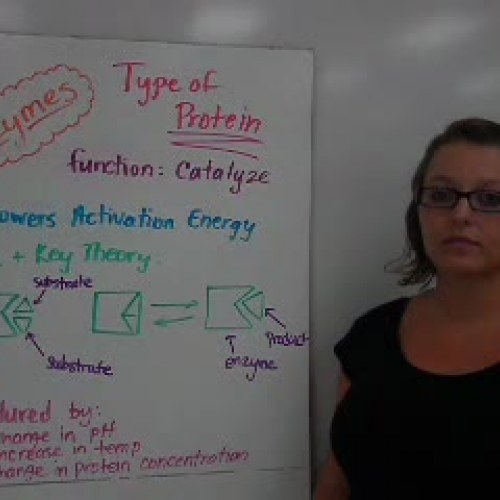 zymes
Type of
Protein
function: Catalyze
owers Activation Energy
+ Key Theory
Substrate
Product
Enzyme
Substrate
tured by:
hange in pH
ncrease in temp
hange in protein concentration